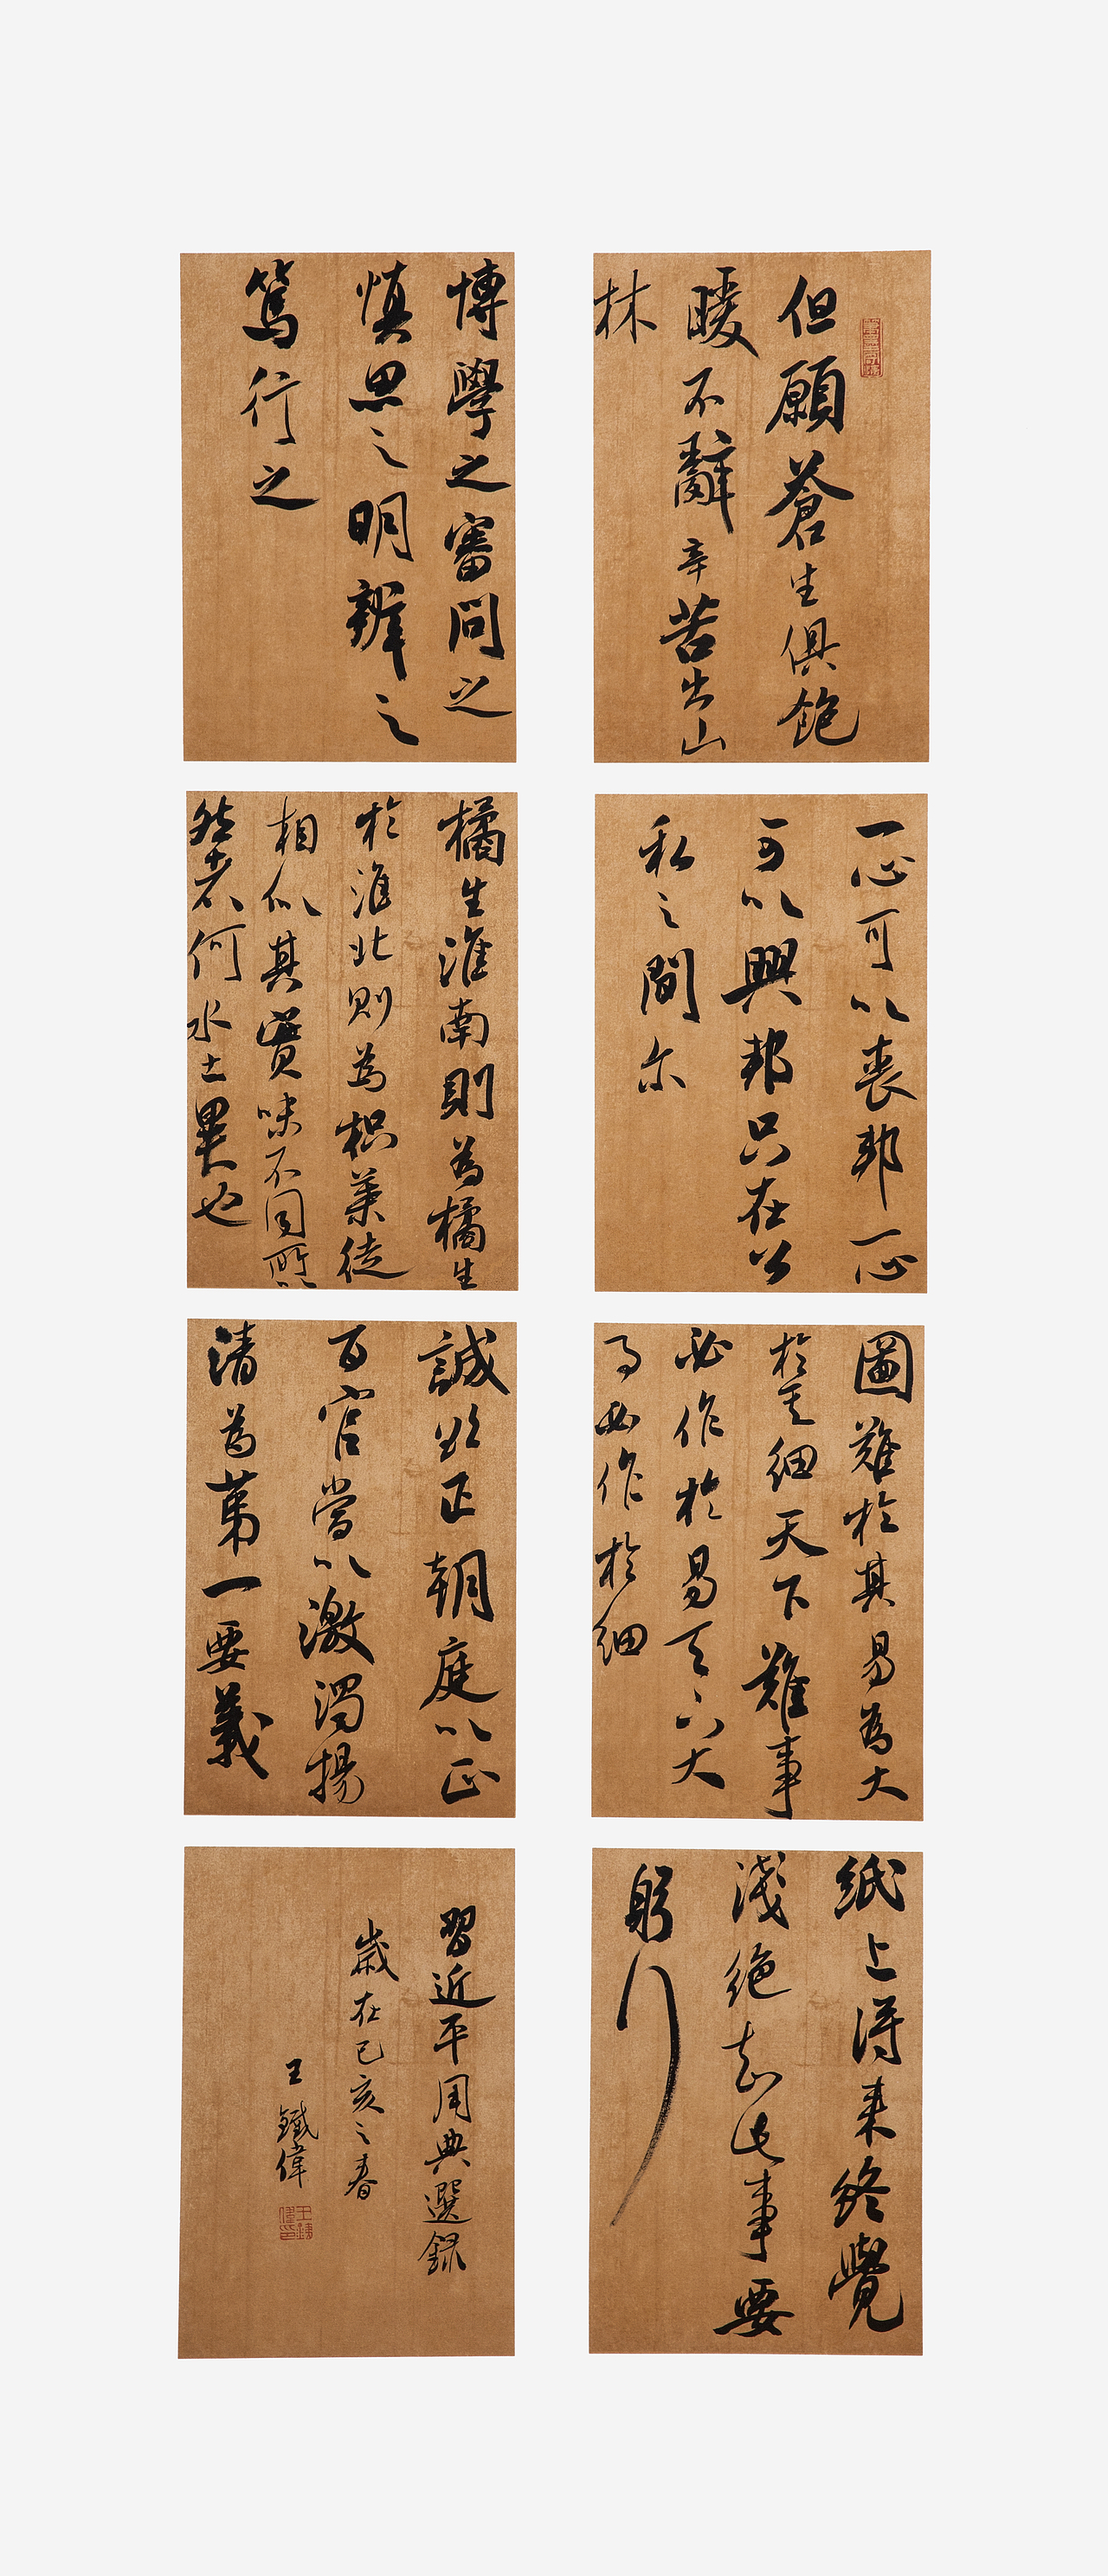 但願蒼生俱飽
暖不辭辛苦出山
林
一心可以喪邦一心
可以興邦只在公
私之間尔
圖難於其易為大
於其細天下難事
必作於易天下大
事必作於細
紙上得来終覺
淺絕知此事要
躬行
博學之審問之
慎思之明辨之
篤行之
橘生淮南則為橘生
於淮北則為枳葉徒
相似其實味不同所以
然者何水土異也
誠欲正朝庭以正
百官當以激濁揚
清為第一要義
習近平用典選録
歲在己亥之春
王鐵偉